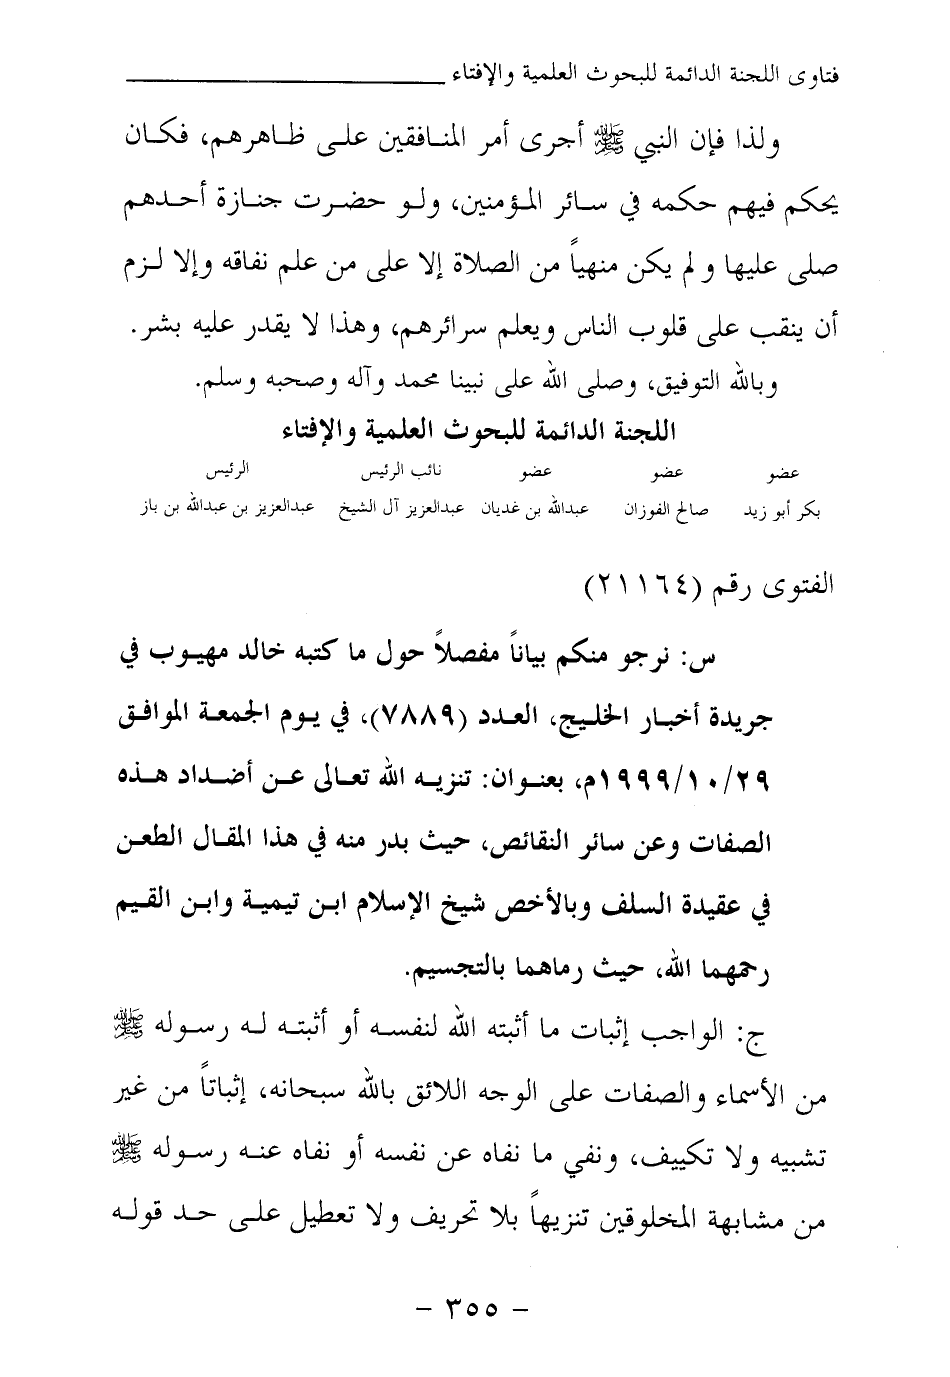 فتاوى اللجنة الدائمة للبحوث العلمية والإفتاء
ولذا فإن النبي ﷺ أجرى أمر المنافقين على ظاهرهم، فكان
يحكم فيهم حكمه في سائر المؤمنين، ولو حضرت جنازة أحدهم
صلى عليها ولم يكن منهياً من الصلاة إلا على من علم نفاقه وإلا لزم
أن ينقب على قلوب الناس ويعلم سرائرهم، وهذا لا يقدر عليه بشر.
وبالله التوفيق، وصلى الله على نبينا محمد وآله وصحبه وسلم.
اللجنة الدائمة للبحوث العلمية والإفتاء
عضو عضو عضو نائب الرئيس الرئيس
بكر أبو زيد صالح الفوزان عبدالله بن غديان عبدالعزيز آل الشيخ عبدالعزيز بن عبدالله بن باز
الفتوى رقم (٢١١٦٤)
س: نرجو منكم بياناً مفصلاً حول ما كتبه خالد مهيوب في
جريدة أخبار الخليج، العدد (٧٨٨٩)، في يوم الجمعة الموافق
١٩٩٩/١٠/٢٩م، بعنوان: تنزيه الله تعالى عن أضداد هذه
الصفات وعن سائر النقائص، حيث بدر منه في هذا المقال الطعن
في عقيدة السلف وبالأخص شيخ الإسلام ابن تيمية وابن القيم
رحمهما الله، حيث رماهما بالتجسيم.
ج: الواجب إثبات ما أثبته الله لنفسه أو أثبته له رسوله ﷺ
من الأسماء والصفات على الوجه اللائق بالله سبحانه، إثباتاً من غير
تشبيه ولا تكييف، ونفي ما نفاه عن نفسه أو نفاه عنه رسوله ﷺ
من مشابهة المخلوقين تنزيهاً بلا تحريف ولا تعطيل على حد قوله
- ٣٥٥ -